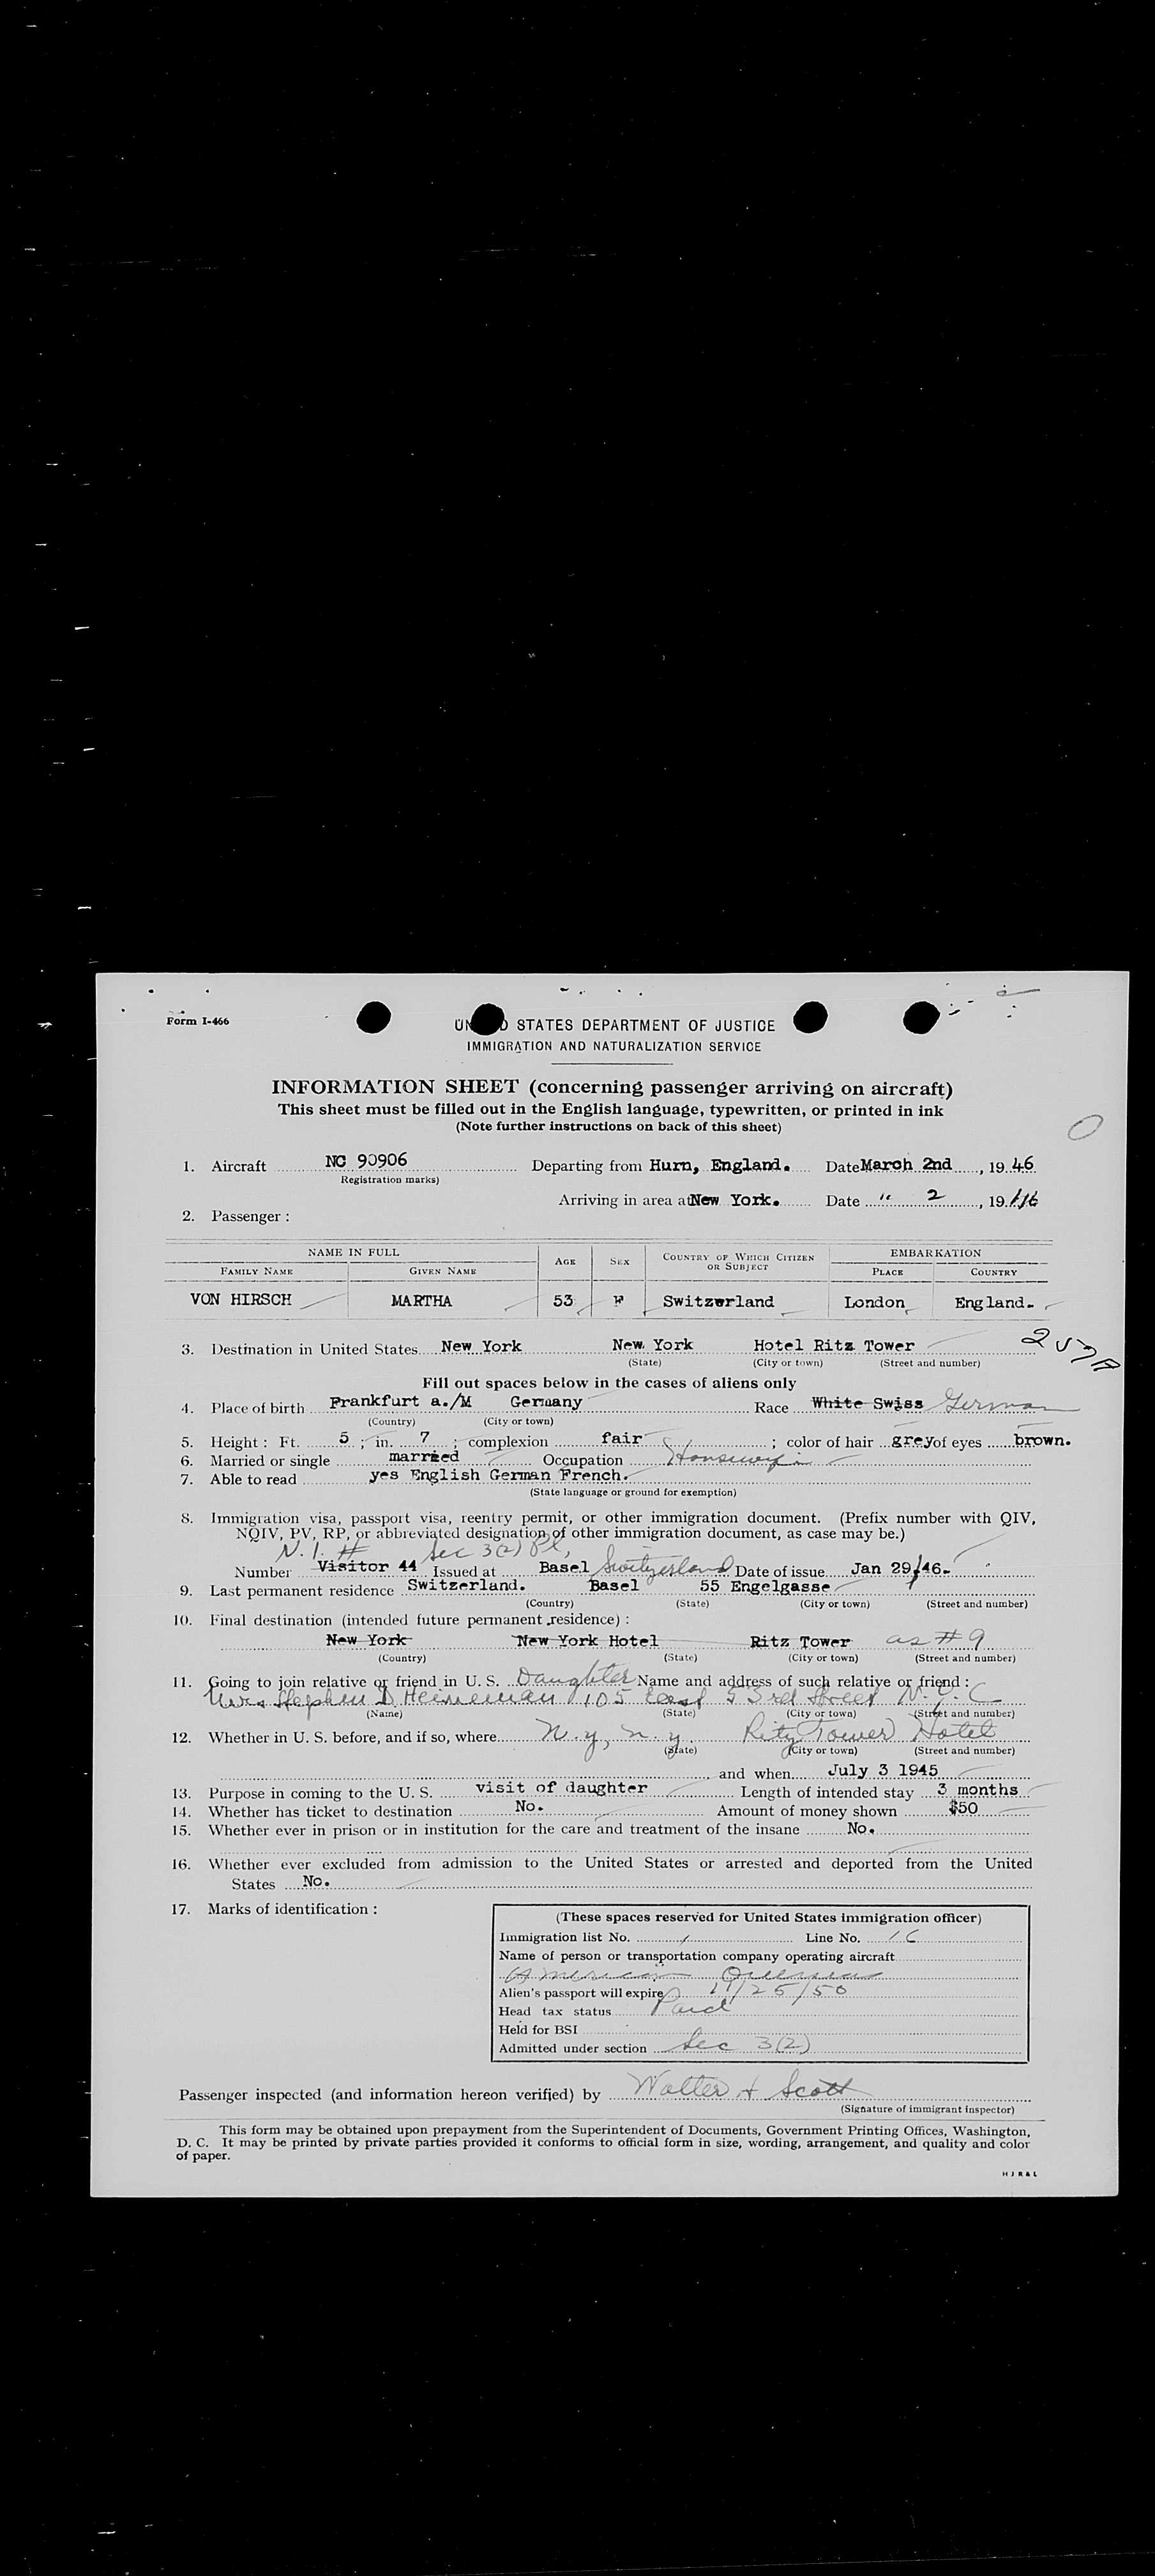 Form I-466
UN D STATES DEPARTMENT OF JUSTICE
IMMIGRATION AND NATURALIZATION SERVICE
INFORMATION SHEET (concerning passenger arriving on aircraft)
This sheet must be filled out in the English language, typewritten, or printed in ink
(Note further instructions on back of this sheet)
1. Aircraft NC 90906 Departing from Hurn, England. Date March 2nd, 19 46
(Registration marks)
Arriving in area at New York. Date " 2, 19 46
2. Passenger :
NAME IN FULL AGE SEX COUNTRY OF WHICH CITIZEN OR SUBJECT EMBARKATION
FAMILY NAME GIVEN NAME PLACE COUNTRY
VON HIRSCH MARTHA 53 F Switzerland London England.
257A
3. Destination in United States New York New York Hotel Ritz Tower
(State) (City or town) (Street and number)
Fill out spaces below in the cases of aliens only
4. Place of birth Frankfurt a./M Germany Race White Swiss German
(Country) (City or town)
5. Height : Ft. 5 ; in. 7 ; complexion fair ; color of hair grey of eyes brown.
6. Married or single married Occupation Housewife
7. Able to read yes English German French.
(State language or ground for exemption)
8. Immigration visa, passport visa, reentry permit, or other immigration document. (Prefix number with QIV,
NQIV, PV, RP, or abbreviated designation of other immigration document, as case may be.)
N. I. # Sec 3(2) Pl,
Number Visitor 44 Issued at Basel Switzerland Date of issue Jan 29/46.
9. Last permanent residence Switzerland. Basel 55 Engelgasse
(Country) (State) (City or town) (Street and number)
10. Final destination (intended future permanent residence) :
New York New York Hotel Ritz Tower as # 9
(Country) (State) (City or town) (Street and number)
11. Going to join relative or friend in U. S. Daughter Name and address of such relative or friend :
Mrs Stephen D. Heineman 105 East 53rd Street N.Y.C
(Name) (State) (City or town) (Street and number)
12. Whether in U. S. before, and if so, where N.y, n.y Ritz Tower Hotel
(State) (City or town) (Street and number)
and when July 3 1945
13. Purpose in coming to the U. S. visit of daughter Length of intended stay 3 months
14. Whether has ticket to destination No. Amount of money shown $50
15. Whether ever in prison or in institution for the care and treatment of the insane No.
16. Whether ever excluded from admission to the United States or arrested and deported from the United
States No.
17. Marks of identification :
(These spaces reserved for United States immigration officer)
Immigration list No. 1 Line No. 16
Name of person or transportation company operating aircraft
American Overseas
Alien's passport will expire 11/25/50
Head tax status Paid
Held for BSI
Admitted under section Sec 3(2)
Passenger inspected (and information hereon verified) by Walter + Scott
(Signature of immigrant inspector)
This form may be obtained upon prepayment from the Superintendent of Documents, Government Printing Offices, Washington,
D. C. It may be printed by private parties provided it conforms to official form in size, wording, arrangement, and quality and color
of paper.
H J R & L